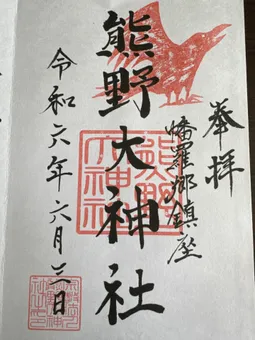 奉拝
幡羅郷鎮座
熊野大神社
熊野
大神社
令和六年六月三日